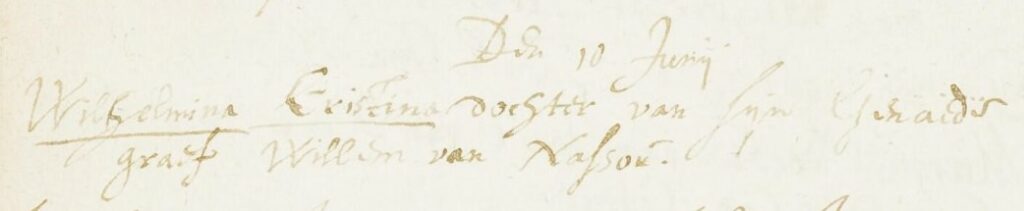 Den 10 Junij
Wilhelmina Cristina dochter van sijn Genaede
graef Willem van Nassou.